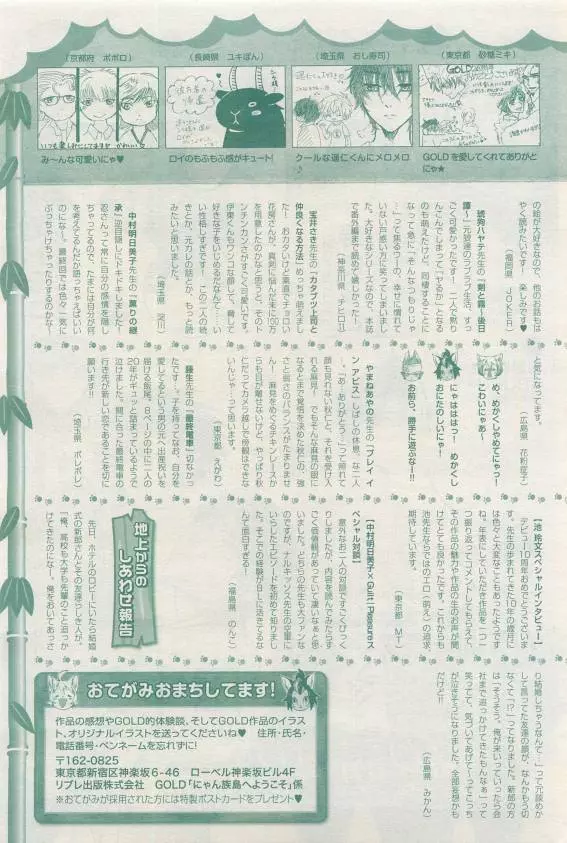 (東京都 砂糖ミキ)
GOLDを愛してくれてありがとにゃ★
(埼玉県 おし寿司)
クールな蓮仁くんにメロメロ♪
(長崎県 ユキぽん)
ロイのもふもふ感がキュート!
(京都府 ポポロ)
み〜んな可愛いにゃ♥
の絵が大好きなので、他のお話もは
やく読みたいです! 楽しみです♥
(福岡県 JOKER)
琥狗ハヤテ先生の『剣と霧〜後日
譚〜』元婆達のラブラブ生活、すっ
ごく可愛かったです! 二人で黙り
こんでしまって「ヤるか」となる
のも萌えたけど、同棲することに
なって急に「そんなつもりじゃ
…」って焦るつーの、幸せに慣れて
いない戸惑い方に笑ってしまいまし
た。大好きなシリーズなので、本誌
で番外編まで読めて嬉しかったー!
(神奈川県 チヒロ)
玉井さき先生の『カタブツ上司と
仲良くなる方法』めっちゃ萌えまし
た! おカタいけど素直でチョロい
花房さんが、真剣に悩んだ末に100均
を用意したのかなと思うと、そのト
ンチンカンさがすごく可愛いです。
伊東くんもワンコな顔して、脅して
好きな子をいじめるだなんて…い
い性格しすぎです! この二人の続
きとか、元カレの話とか、もっと読
みたいと思いました。
(埼玉県 栄川)
中村明日美子先生の『薫りの継
承』逆目隠しにドキドキしました!
忍さんって常に自分の感情を隠し
ちゃってるので、たまには自分が何
を考えてるんだか語っちゃえばいい
のにな〜。最終回では色々一気に
ぶっちゃけちゃったりするのかな〜
と気になってます。
(広島県 花粉症子)
め、めかくしやめてにゃっ!
こわいにゃあ〜
にゃははっ! めかくし
おにたのしいにゃ!
お前ら、勝手に遊ぶな〜!!
やまねあやの先生の『ブレイ イ
ン アビス』しばしの休息、な二人
…「あ、ありがとう…」って照れて
顔も見れない秋仁と、それを受け入
れる麻見〜 でもそんな麻見の眼に
なるとまで覚悟を決めた秋仁の、強
さと弱さのバランスがたまりませ
ん! 麻見をめぐるチキンレースか
らも目が離せないけど、やっぱり秋
仁だってカメラ越しで傍観はできな
いんじゃ…って思います。
(東京都 えがわ)
藤生先生の『最終電車』切なかっ
たです…! 子を持ってなお、自分を
愛してるという男の元へ出産祝いを
届ける飯尾。8ページの中に二人の
20年がギュッと詰まっているようで
泣けました。間に合った最終電車の
行き先が新しい恋であることを切に
願います!!
(埼玉県 ポレポレ)
【池 玲文スペシャルインタビュー】
デビュー10周年おめでとうございま
す。先生の歩まれてきた10年の歳月に
は色々と大変なこともあったようです
ね。年表にしていただき作品を一つ一
つ振り返ってコメントしてもらえて、
その作品の魅力や作品の生のお声が聞
けてとても良かったです。これからも
池先生ならではのエロ(萌え)の追求、
期待しています。
(東京都 MT)
【中村明日美子×Guilt|Pleasureス
ペシャル対談】
意外なお二人の対談ですごくびっく
りしましたが、内容を読んでみたらす
ごく価値観があっていて凄いなぁと思
いました。どちらの先生も大ファンな
のですが、ナルキッソス先生の空軍に
いらしたエピソードを初めて知りまし
た。そこでの経験がBLに活きてるな
んて面白すぎる!
(福島県 のんこ)
地上からの
しあわせ報告
先日、ホテルのロビーにいたら結婚
式の新郎さんとその友達らしき人が。
「俺、高校も大学も先輩のこと追っか
けてきたのにな〜。俺をおいてあっさ
り結婚しちゃうなんて…」って冗談めか
して言ってた友達の顔が、なんかもう切
なくて「!?」ってなりました。新郎の方
は「そうそう、俺が来いっていったら会
社まで追っかけてきたもんなぁ」って
笑ってて、気づいてあげて〜ってこっち
が泣きそうになりました。全部妄想かも
だけど!!
(広島県 みかん)
おてがみおまちしてます!
作品の感想やGOLD的体験談、そしてGOLD作品のイラス
ト、オリジナルイラストを送ってくださいね♥ 住所・氏名・
電話番号・ペンネームを忘れずに!
〒162-0825
東京都新宿区神楽坂6-46 ローベル神楽坂ビル4F
リブレ出版株式会社 GOLD「にゃん族島へようこそ」係
※おてがみが採用された方には特製ポストカードをプレゼント♥